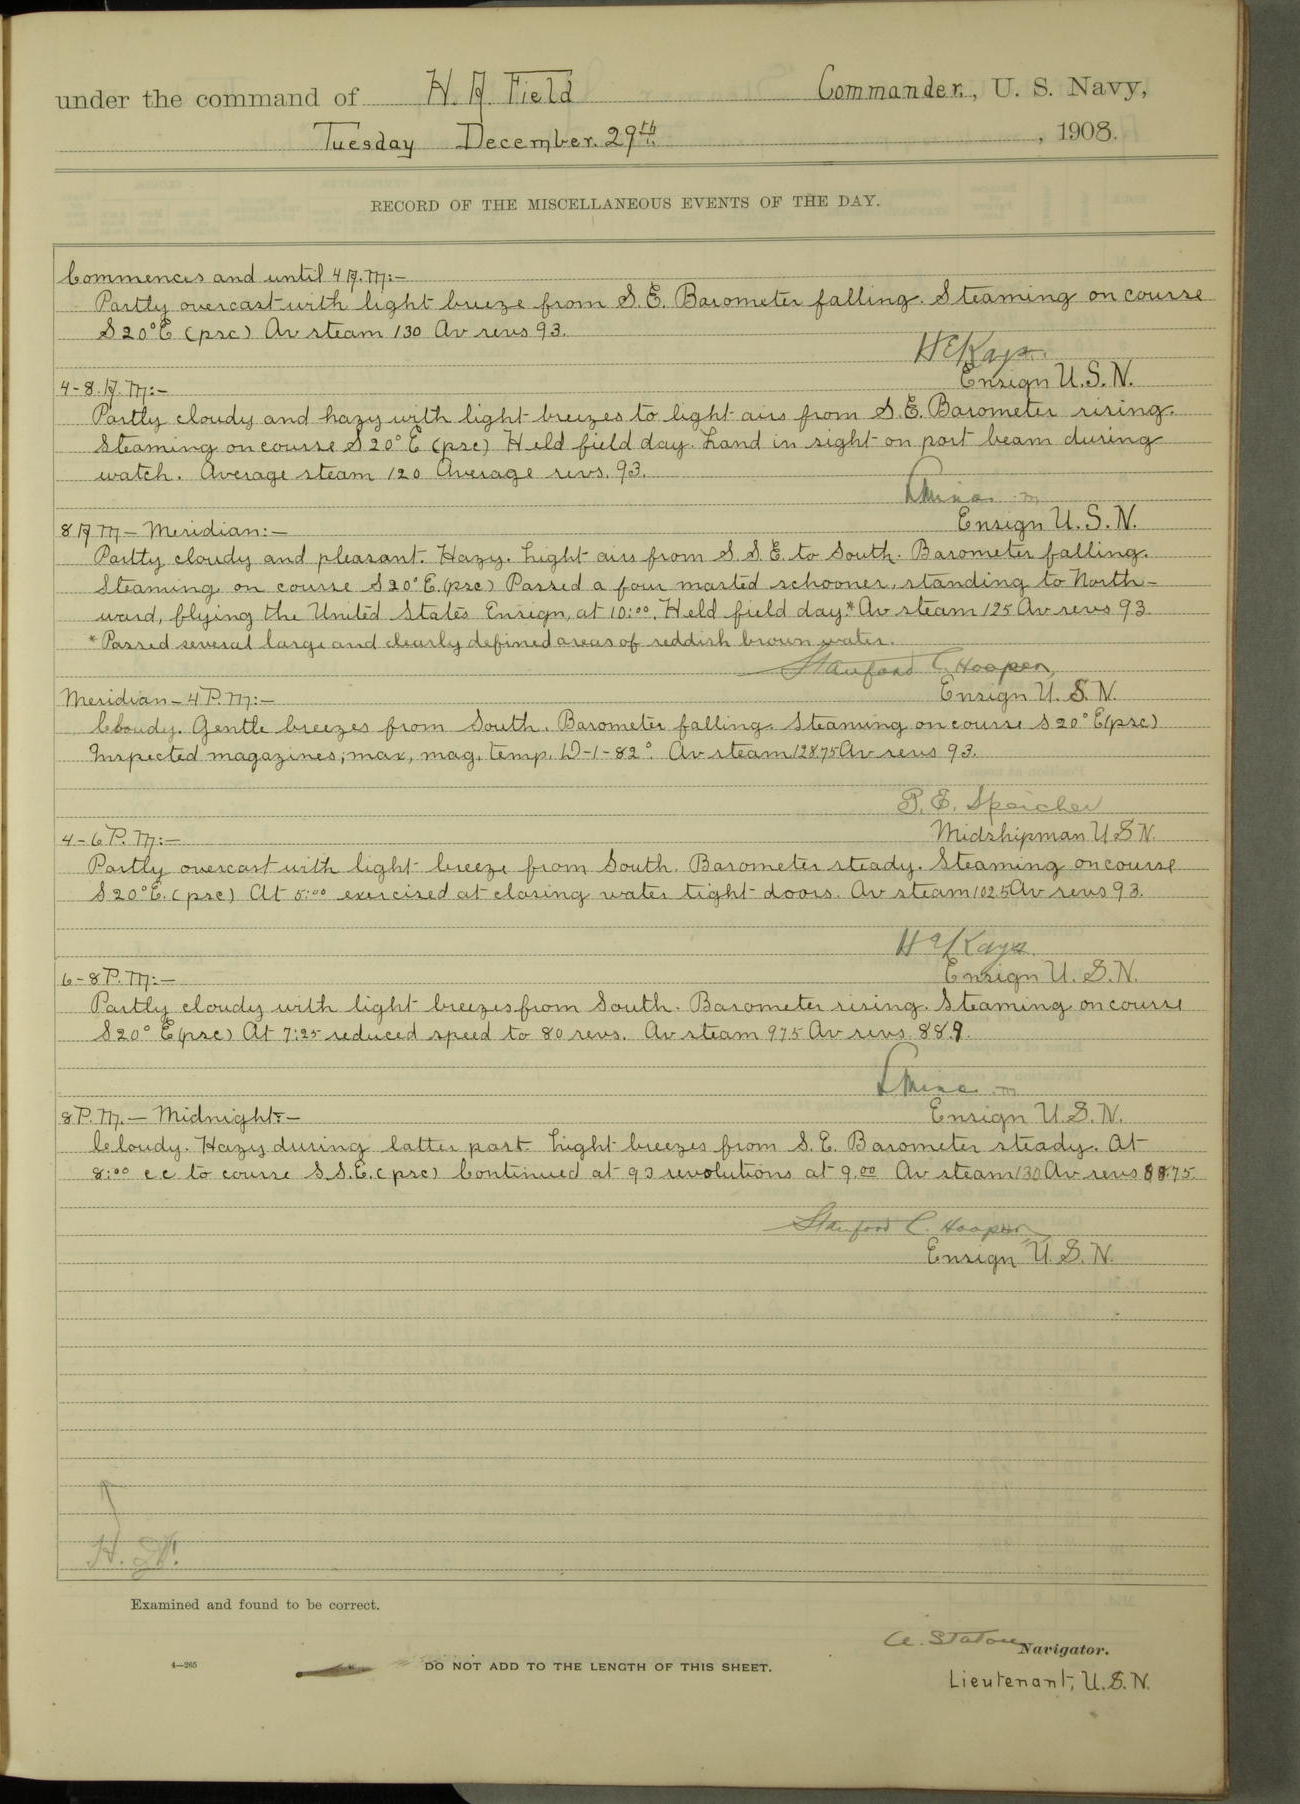 under the command of H. A. Field Commander, U. S. Navy,
Tuesday December 29th, 1908.
RECORD OF THE MISCELLANEOUS EVENTS OF THE DAY.
Commences and until 4 A.M:-
Partly overcast with light breeze from S.E. Barometer falling. Steaming on course
S20°E (psc) Av steam 130 Av revs 93.
H E Kays.
Ensign U.S.N.
4-8 A.M:-
Partly cloudy and hazy with light breezes to light airs from S.E. Barometer rising.
Steaming on course S20°E (psc) Held field day. Land in sight on port beam during
watch. Average steam 120 Average revs. 93.
Ensign U.S.N.
8 A M - Meridian:-
Partly cloudy and pleasant. Hazy. Light airs from S.S.E. to South. Barometer falling.
Steaming on course S20°E.(psc) Passed a four masted schooner, standing to North-
ward, flying the United States Ensign, at 10:00. Held field day.* Av steam 125 Av revs 93
* Passed several large and clearly defined areas of reddish brown water.
Stanford C. Hooper,
Ensign U.S.N.
Meridian - 4 P.M:-
Cloudy. Gentle breezes from South. Barometer falling. Steaming on course S20°E(psc)
Inspected magazines; max. mag. temp. D-1-82°. Av steam 128.75 Av revs 93.
P. E. Speicher
Midshipman U S N.
4-6 P.M:-
Partly overcast with light breeze from South. Barometer steady. Steaming on course
S20°E.(psc) At 5:00 exercised at closing water tight doors. Av steam 102.5 Av revs 93.
H E Kays
Ensign U.S.N.
6-8 P.M:-
Partly cloudy with light breezes from South. Barometer rising. Steaming on course
S20°E(psc) At 7:25 reduced speed to 80 revs. Av steam 97.5 Av revs. 88.9.
Ensign U.S.N.
8 P.M. - Midnight:-
Cloudy. Hazy during latter part. Light breezes from S.E. Barometer steady. At
8:00 c c to course S.S.E.(psc) Continued at 93 revolutions at 9.00 Av steam 130 Av revs 88.75.
Stanford C. Hooper
Ensign U.S.N.
Examined and found to be correct.
A. Staton Navigator.
4—265
DO NOT ADD TO THE LENGTH OF THIS SHEET.
Lieutenant, U.S.N.